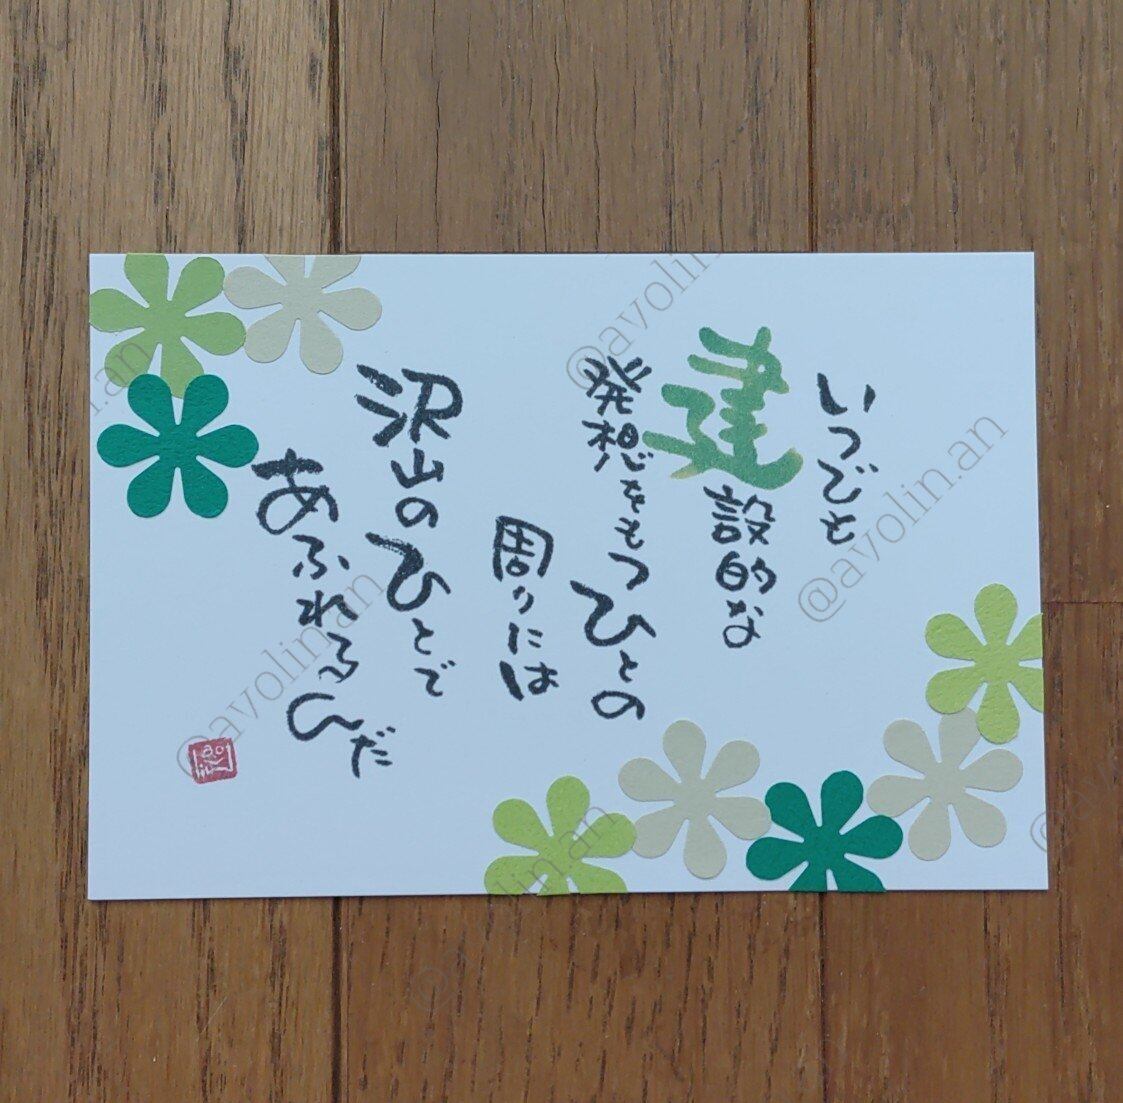 いつでも
建設的な
発想をもつひとの
周りには
沢山のひとで
あふれるんだ
@avolin.an
@avolin.an
@avolin.an